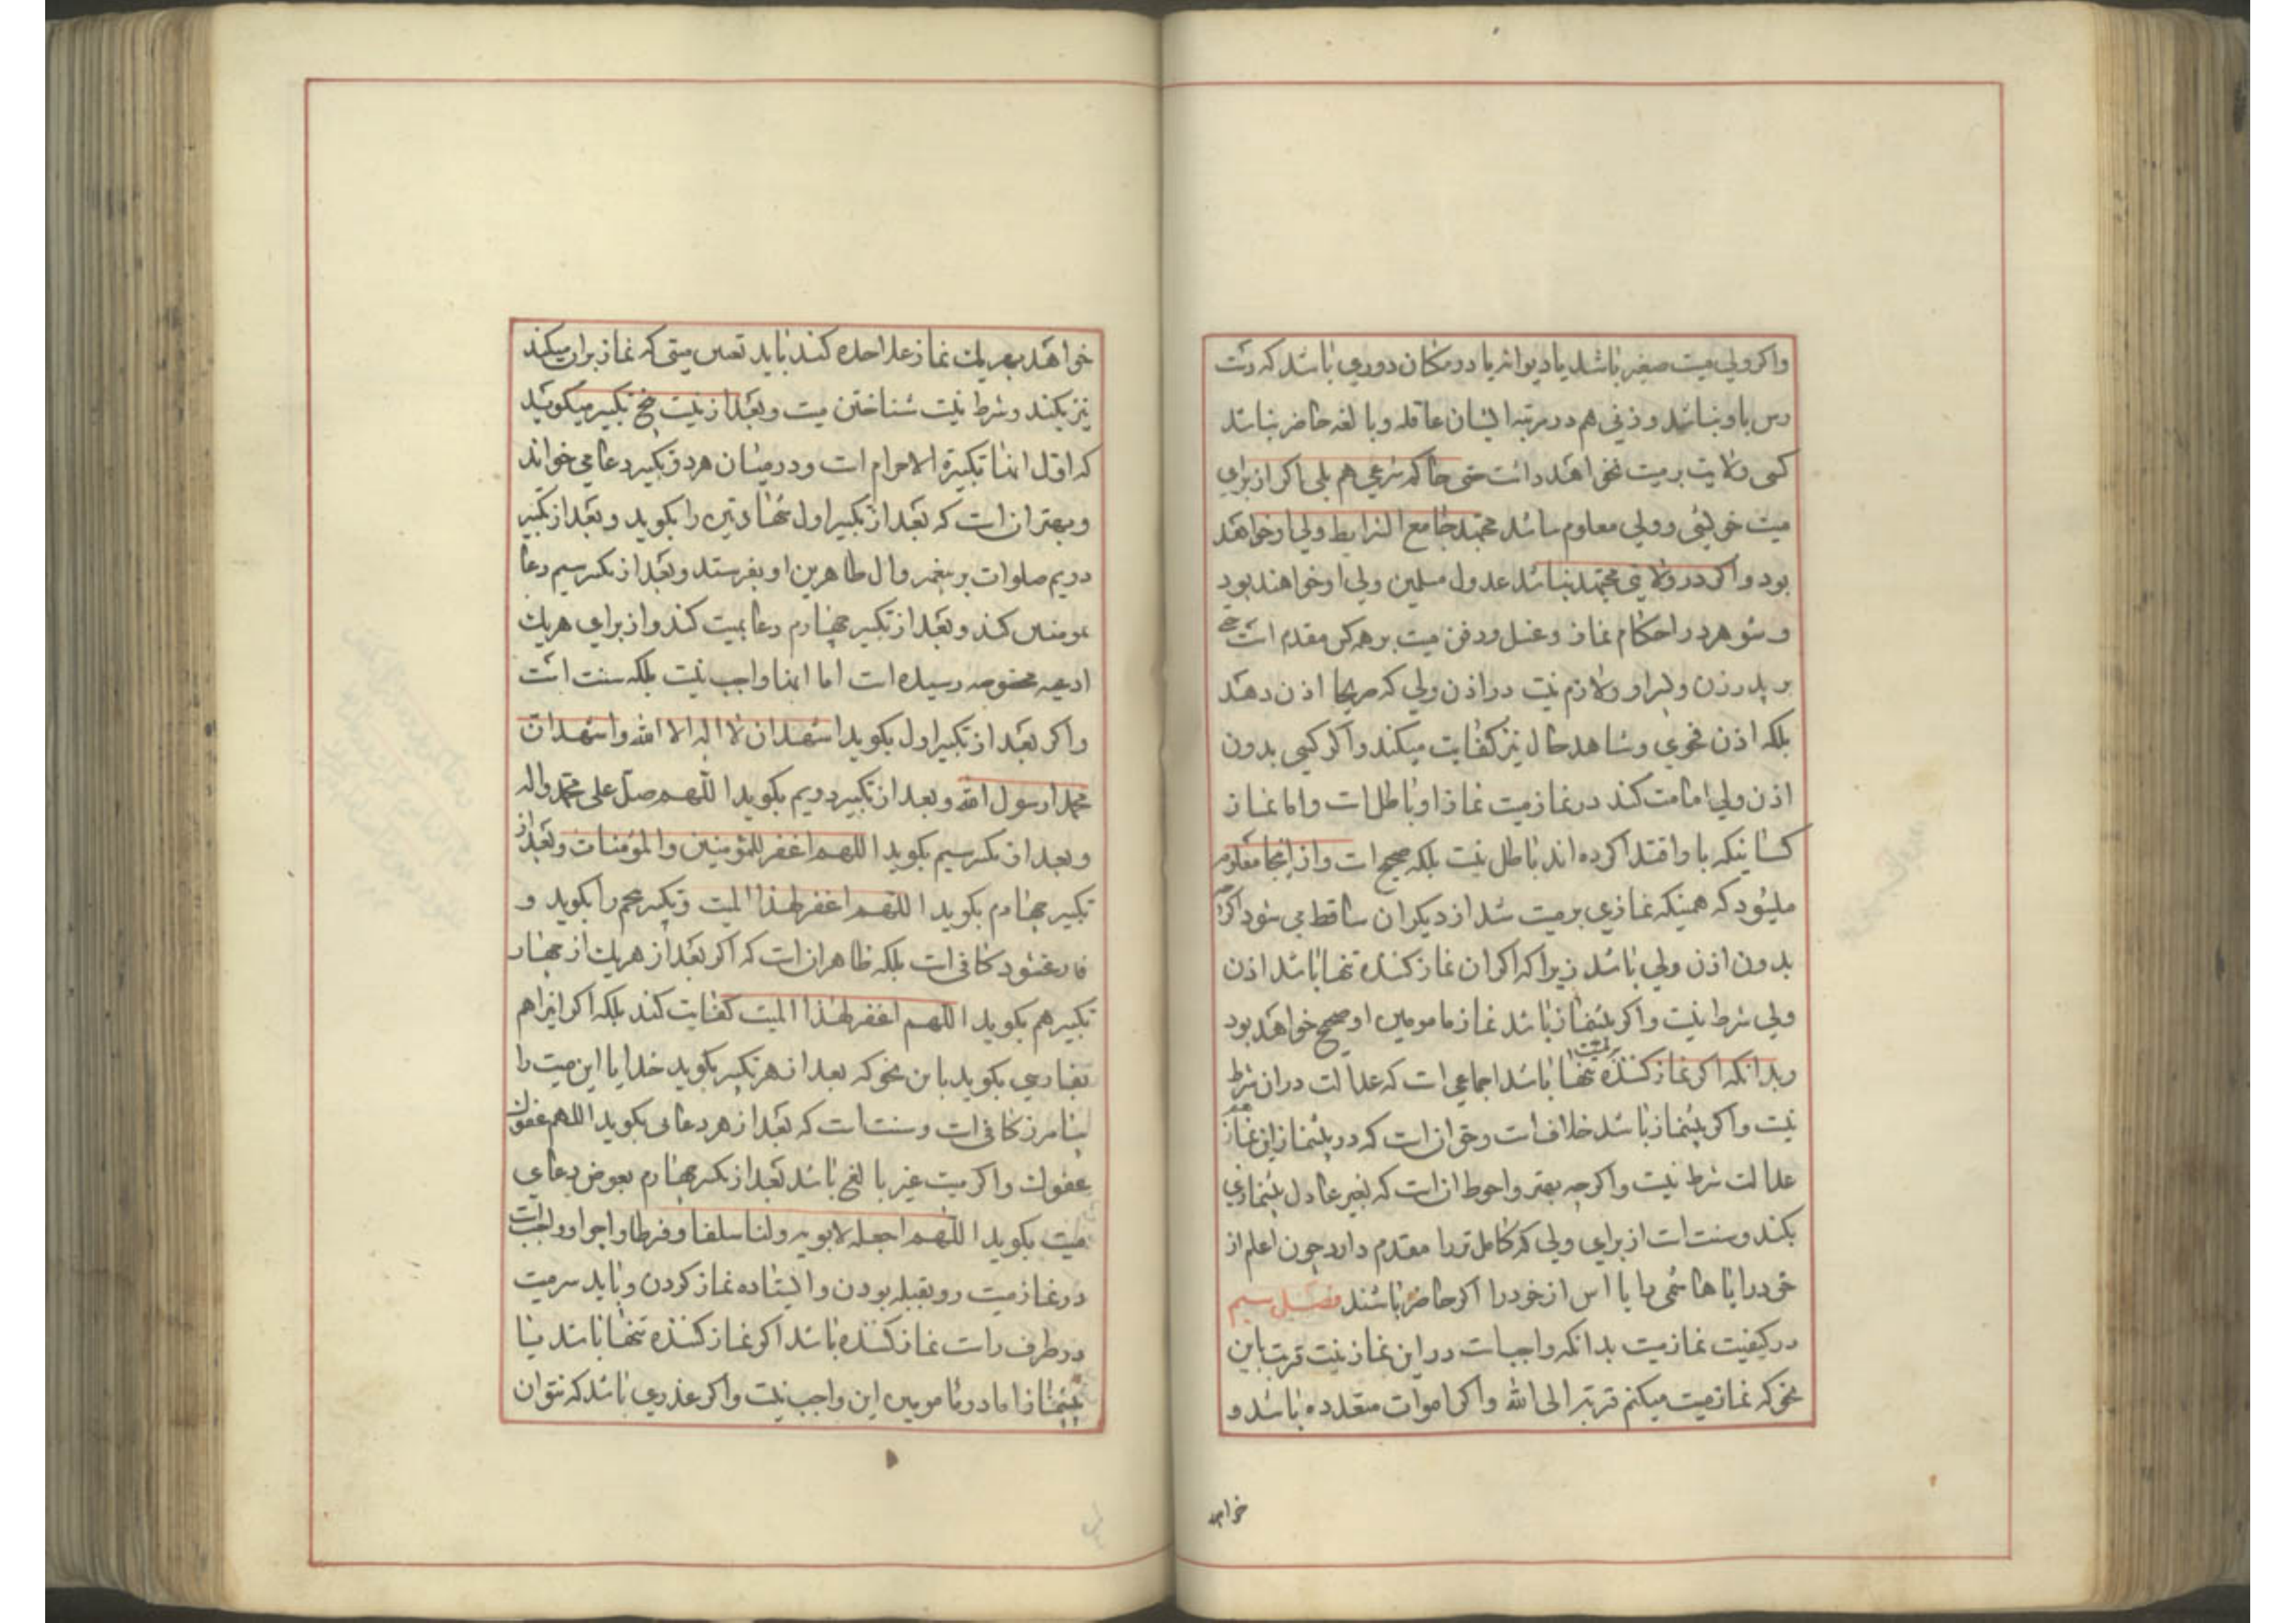 واکر ولی میت صغیر باشد یا دیوانه یا در مکان دوری باشد که دست
رس باو نباشد و زنی هم در مرتبه ایشان عاقله و بالغه حاضر نباشد
کسی ولایت بر میت نخواهد داشت حتی حاکم شرعی هم بلی اکر از برای
میت خویشی و ولی معلوم نباشد مجتهد جامع الشرایط ولی او خواهد
بود و اکر در ولایتی مجتهد نباشد عدول مسلمین ولی او خواهند بود
و شوهر در احکام نماز و غسل و دفن میت بر همه کس مقدم است حتی
بر پدر زن و پسر او و لازم نیست در اذن ولی که صریحا اذن دهد
بلکه اذن فحوی و شاهد حال نیز کفایت میکند و اکر کسی بدون
اذن ولی امامت کند در نماز میت نماز او باطل است و اما نماز
کسانیکه باو اقتدا کرده اند باطل نیست بلکه صحیح است و از اینجا معلوم
میشود که همینکه نمازی بر میت شد از دیکران ساقط می شود اکرچه
بدون اذن ولی باشد زیرا که اکر ان نماز کننده تنها باشد اذن
ولی شرط نیست و اکر پیشنماز باشد نماز مامومین او صحیح خواهد بود
و بدانکه اکر نماز کننده بر میت تنها باشد اجماعی است که عدالت در ان شرط
نیست و اکر پیشنماز باشد خلاف است و حق ان است که در پیشنماز این نماز هم
عدالت شرط نیست و اکرچه بهتر و احوط ان است که بغیر عادل پیشنمازی
بکند و سنت است از برای ولی که کامل تر را مقدم دارد چون اعلم از
خود را یا هاشمی را یا اسن از خود را اکر حاضر باشند فصل سیم
در کیفیت نماز میت بدانکه واجب است در این نماز نیت قربت باین
نحو که نماز میت میکنم قربة الی الله و اکر اموات متعدده باشد و
خواهد
خواهد بهر یک نماز علیاحده کند باید تعیین میتی که نماز بر ان میکند
نیز بکند و شرط نیست شناختن میت و بعد از نیت پنج تکبیر میکوید
که اول انها تکبیرة الاحرام است و در میان هر دو تکبیر دعا می خواند
و بهتر ان است که بعد از تکبیر اول شهادتین را بکوید و بعد از تکبیر
دویم صلوات بر پیغمبر و ال طاهرین او بفرستد و بعد از تکبیر سیم دعا
بمومنین کند و بعد از تکبیر چهارم دعا بمیت کند و از برای هر یک
ادعیه مخصوصه رسیده است اما انها واجب نیست بلکه سنت است
و اکر بعد از تکبیر اول بکوید اشهد ان لا اله الا الله و اشهد ان
محمدا رسول الله و بعد از تکبیر دویم بکوید اللهم صل علی محمد و اله
و بعد از تکبیر سیم بکوید اللهم اغفر للمؤمنین والمؤمنات و بعد از
تکبیر چهارم بکوید اللهم اغفر لهذا المیت و تکبیر پنجم را بکوید و
فارغ شود کافی است بلکه ظاهر ان است که اکر بعد از هر یک از چهار
تکبیر هم بکوید اللهم اغفر لهذا المیت کفایت کند بلکه اکر اینرا هم
بفارسی بکوید باین نحو که بعد از هر تکبیر بکوید خدایا این میت را
بیامرز کافی است و سنت است که بعد از هر دعائی بکوید اللهم عفوک
عفوک و اکر میت غیر بالغی باشد بعد از تکبیر چهارم بعوض دعای
میت بکوید اللهم اجعله لابویه و لنا سلفا و فرطا و اجرا و واجب است
در نماز میت رو بقبله بودن و ایستاده نماز کردن و باید سر میت
در طرف راست نماز کننده باشد اکر نماز کننده تنها باشد یا
پیشنماز اما در مامومین این واجب نیست و اکر عذری باشد که نتوان